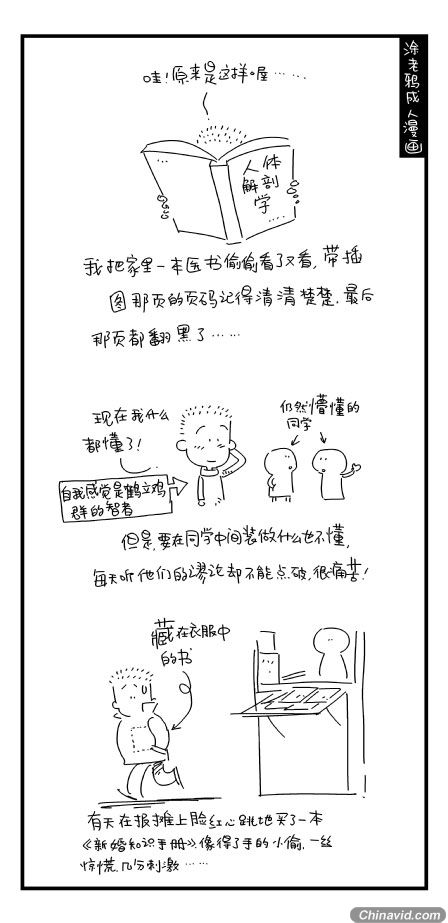 涂老鸦成人漫画
哇!原来是这样喔……
人体
解剖
学
我把家里一本医书偷偷看了又看,带插
图那页的页码记得清清楚楚,最后
那页都翻黑了……
现在我什么
都懂了!
仍然懵懂的
同学
自我感觉是鹤立鸡
群的智者
但是,要在同学中间装做什么也不懂,
每天听他们的谬论却不能点破,很痛苦!
藏在衣服中
的书
有天在报摊上脸红心跳地买了一本
《新婚知识手册》像得了手的小偷,一丝
惊慌,几分刺激……
Chinavid.com